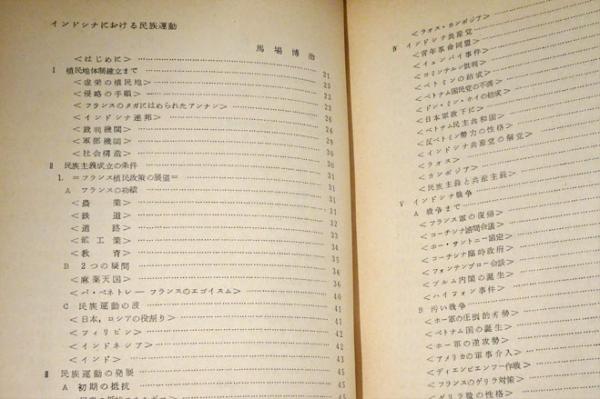 インドシナにおける民族運動
馬場博治
<はじめに> 21
I 植民地体制確立まで 21
<虚栄の植民地> 22
<侵略の手順> 23
<フランスのタガにはめられたアンナン>
<インドシナ連邦>
<裁判機関>
<軍部機関>
<社会構造> 30
II 民族主義成立の条件 30
1. =フランス植民政策の展望= 31
A フランスの功績 31
<農業> 31
<鉄道> 32
<道路> 34
<鉱工業>
<教育> 35
B 2つの疑問
<麻薬天国> 36
<パ・ペネトレー フランスのエゴイズム> 40
C 民族運動の波 41
<日本,ロシアの役割り> 41
<フィリピン> 42
<インドネシア> 42
<インド> 43
III 民族運動の発展 45
A 初期の抵抗 45
<ラオス・カンボジア>
IV インドシナ共産党
<青年革命同盟>
<イェンバイ事件>
<コミンテルン批判>
<ベトミンの結成>
<ベトナム国民党の不満>
<ドン・ミン・ホイの結成>
<日本軍政下に>
<ベトナム民主共和国>
<反ベトミン勢力の性格>
<インドシナ共産党の解党>
<ラオス>
<カンボジア>
<民族主義と共産主義>
V インドシナ戦争
A 戦争まで
<フランス軍の復帰>
<コーチシナ諮問会議>
<ホー・サントニー協定>
<コーチシナ臨時政府>
<フォンテンブロー会議>
<ブルム内閣の誕生>
<ハイフォン事件>
B 汚い戦争
<ホー軍の圧倒的劣勢>
<ベトナム国の誕生>
<ホー軍の逆攻勢>
<アメリカの軍事介入>
<ディエンビエンフー作戦>
<フランスのゲリラ対策>
<ゲリラ戦の性格>